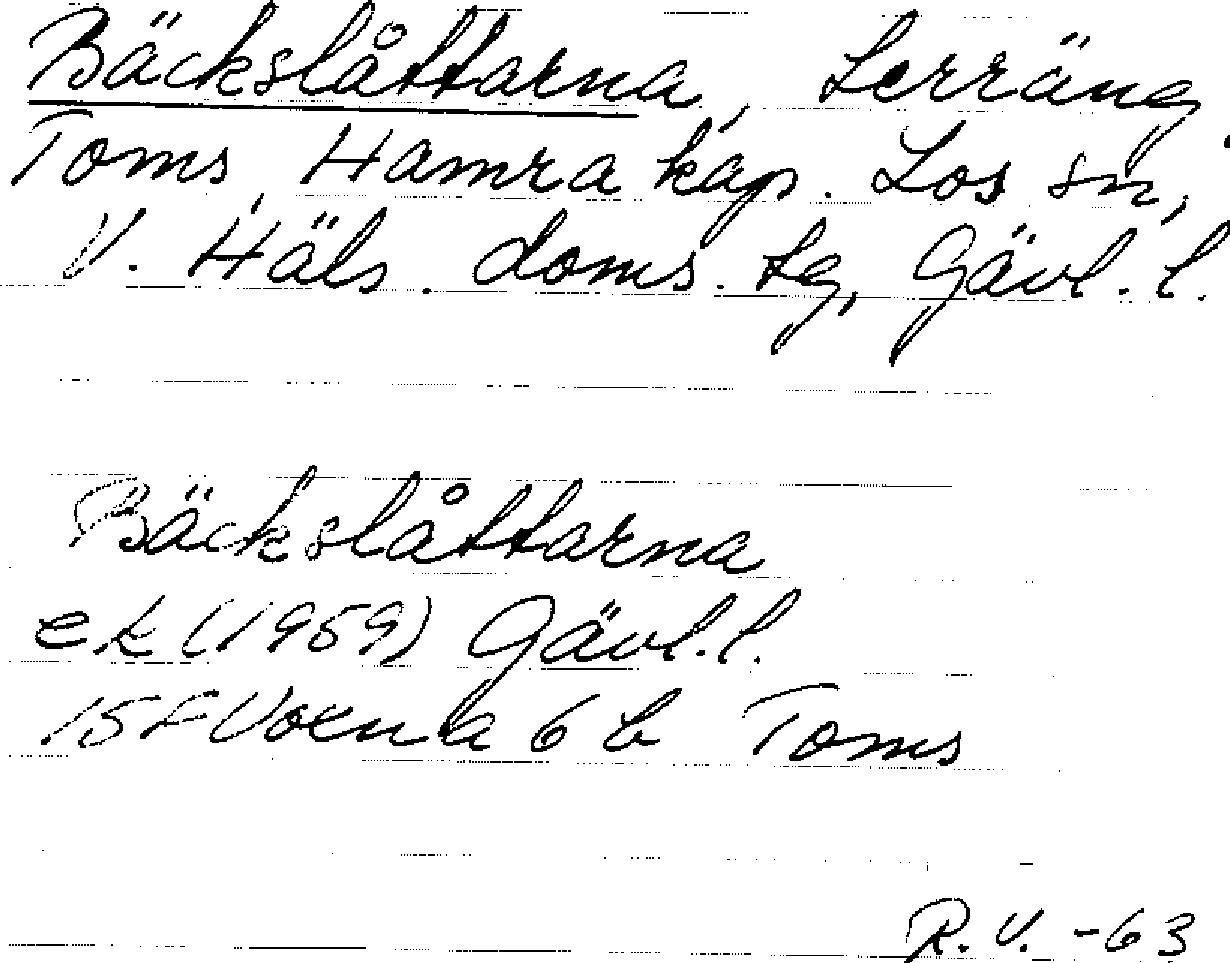 Bäckslåttarna, terräng.
Toms, Hamra kap. Los sn,
V. Häls. doms. tg, Gävl. l.
Bäckslåttarna
ek (1959) Gävl. l.
15 F Voxna 6 b Toms
R. V. -63